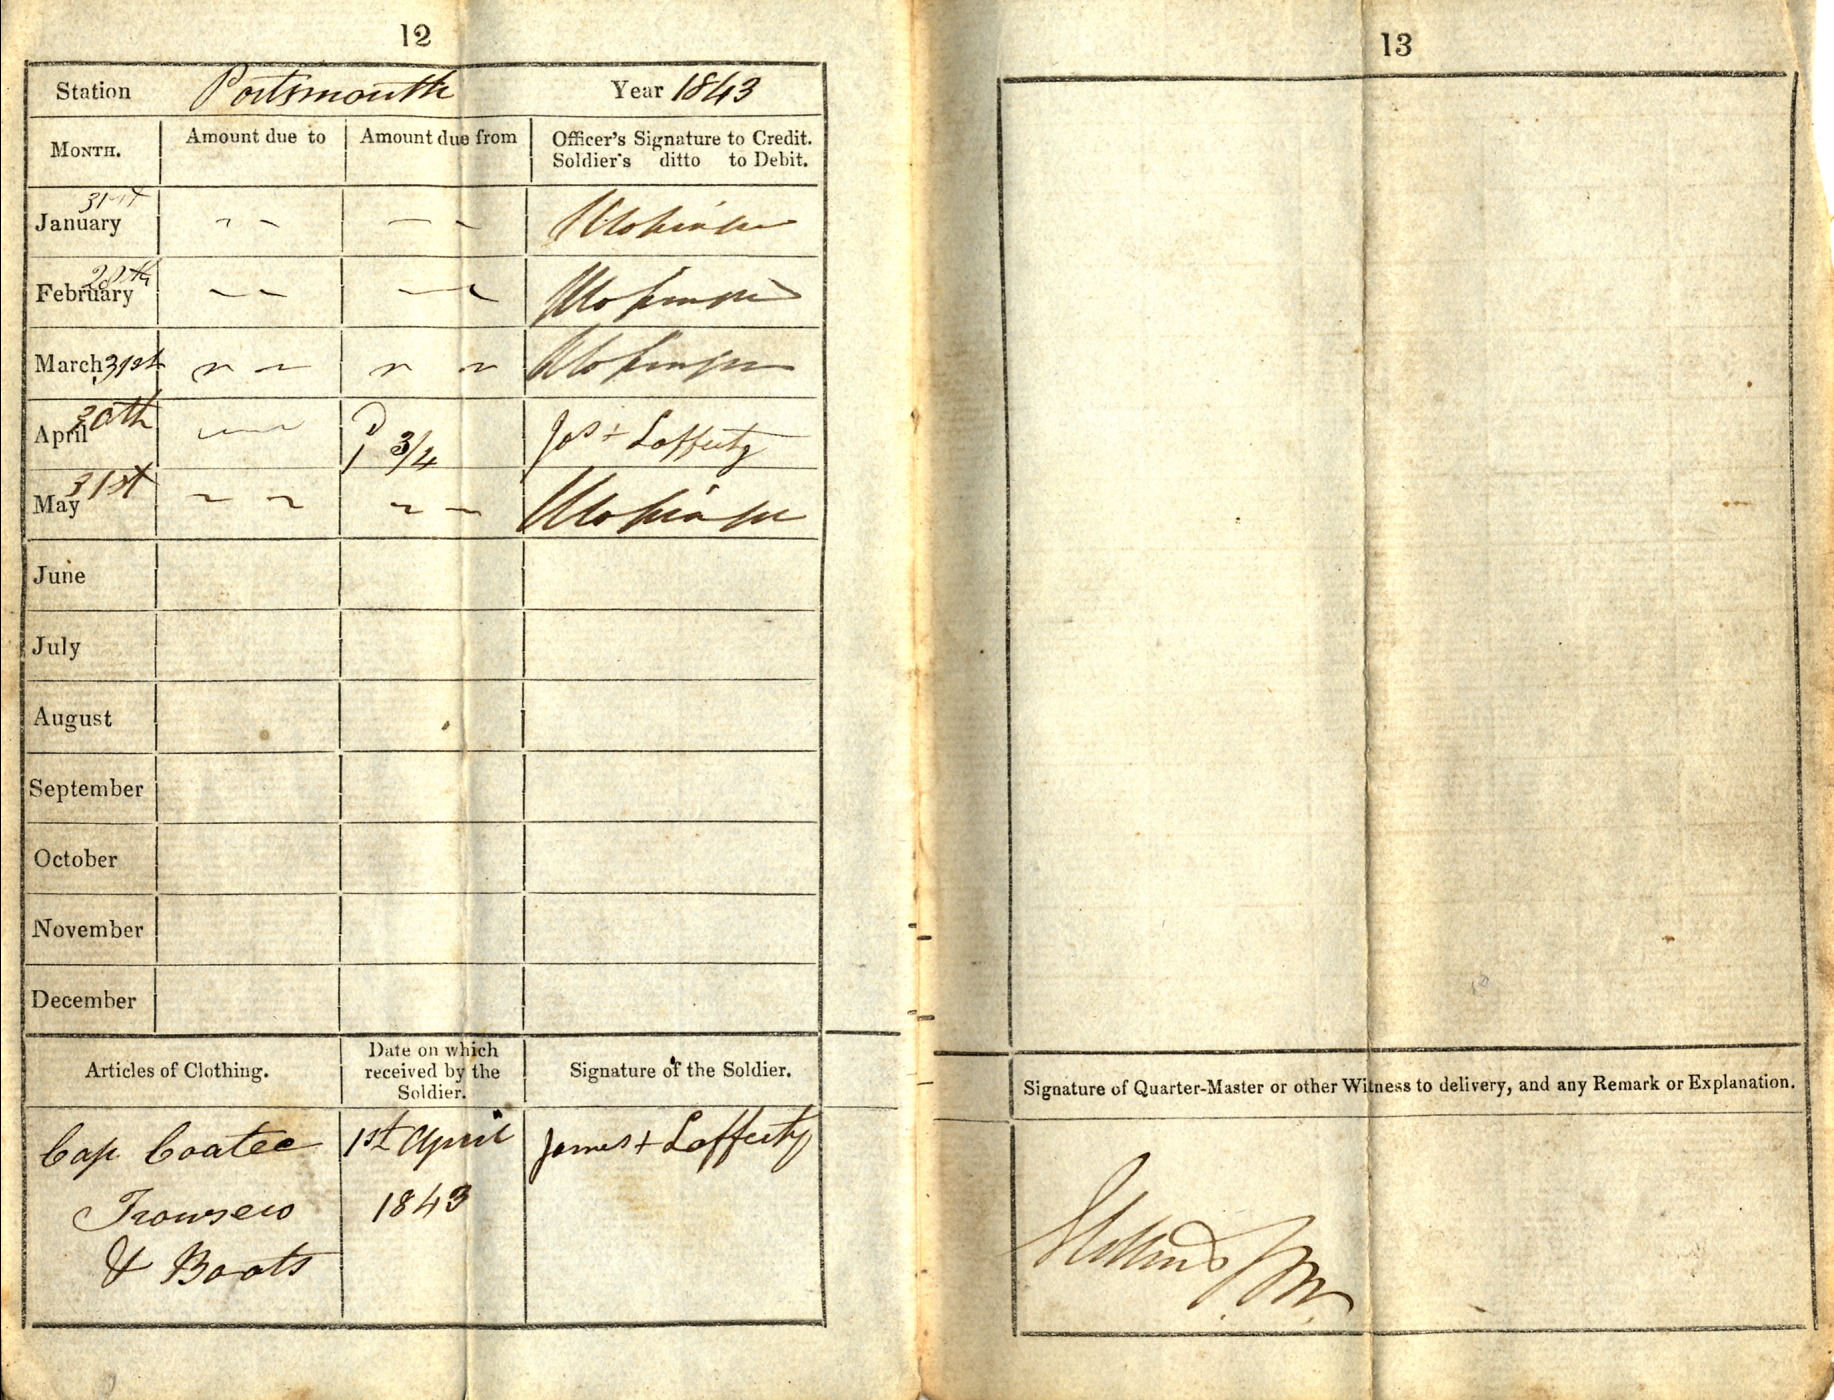 12
Station Portsmouth Year 1843
MONTH. Amount due to Amount due from Officer's Signature to Credit.
Soldier's ditto to Debit.
31st
January
28th
February
March 31st
30th
April 1 3/4 Jas + Lafferty
31st
May
June
July
August
September
October
November
December
Articles of Clothing. Date on which received by the Soldier. Signature of the Soldier.
Cap Coatee 1st April James + Lafferty
Trowsers 1843
& Boots
13
Signature of Quarter-Master or other Witness to delivery, and any Remark or Explanation.